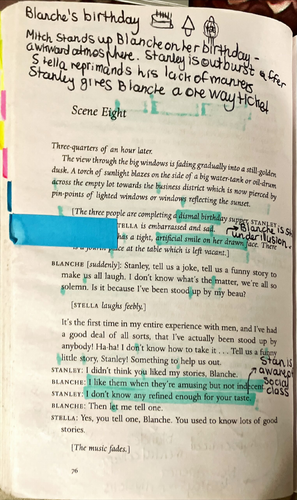 Blanche's birthday
Mitch stands up Blanche on her birthday -
awkward atmosphere. Stanley is outburst after
Stella reprimands his lack of manners
Stanley gives Blanche a one way ticket
Scene Eight
Three-quarters of an hour later.
The view through the big windows is fading gradually into a still-golden
dusk. A torch of sunlight blazes on the side of a big water-tank or oil-drum
across the empty lot towards the business district which is now pierced by
pin-points of lighted windows or windows reflecting the sunset.
[The three people are completing a dismal birthday supper. STANLEY
STELLA is embarrassed and sad.
has a tight, artificial smile on her drawn face. There
is a fourth place at the table which is left vacant.]
Blanche is
under illusion.
BLANCHE [suddenly]: Stanley, tell us a joke, tell us a funny story to
make us all laugh. I don't know what's the matter, we're all so
solemn. Is it because I've been stood up by my beau?
[STELLA laughs feebly.]
It's the first time in my entire experience with men, and I've had
a good deal of all sorts, that I've actually been stood up by
anybody! Ha-ha! I don't know how to take it . . . Tell us a funny
little story, Stanley! Something to help us out.
STANLEY: I didn't think you liked my stories, Blanche.
BLANCHE: I like them when they're amusing but not indecent.
STANLEY: I don't know any refined enough for your taste.
BLANCHE: Then let me tell one.
STELLA: Yes, you tell one, Blanche. You used to know lots of good
stories.
Stan is
aware of
social
class
[The music fades.]
76